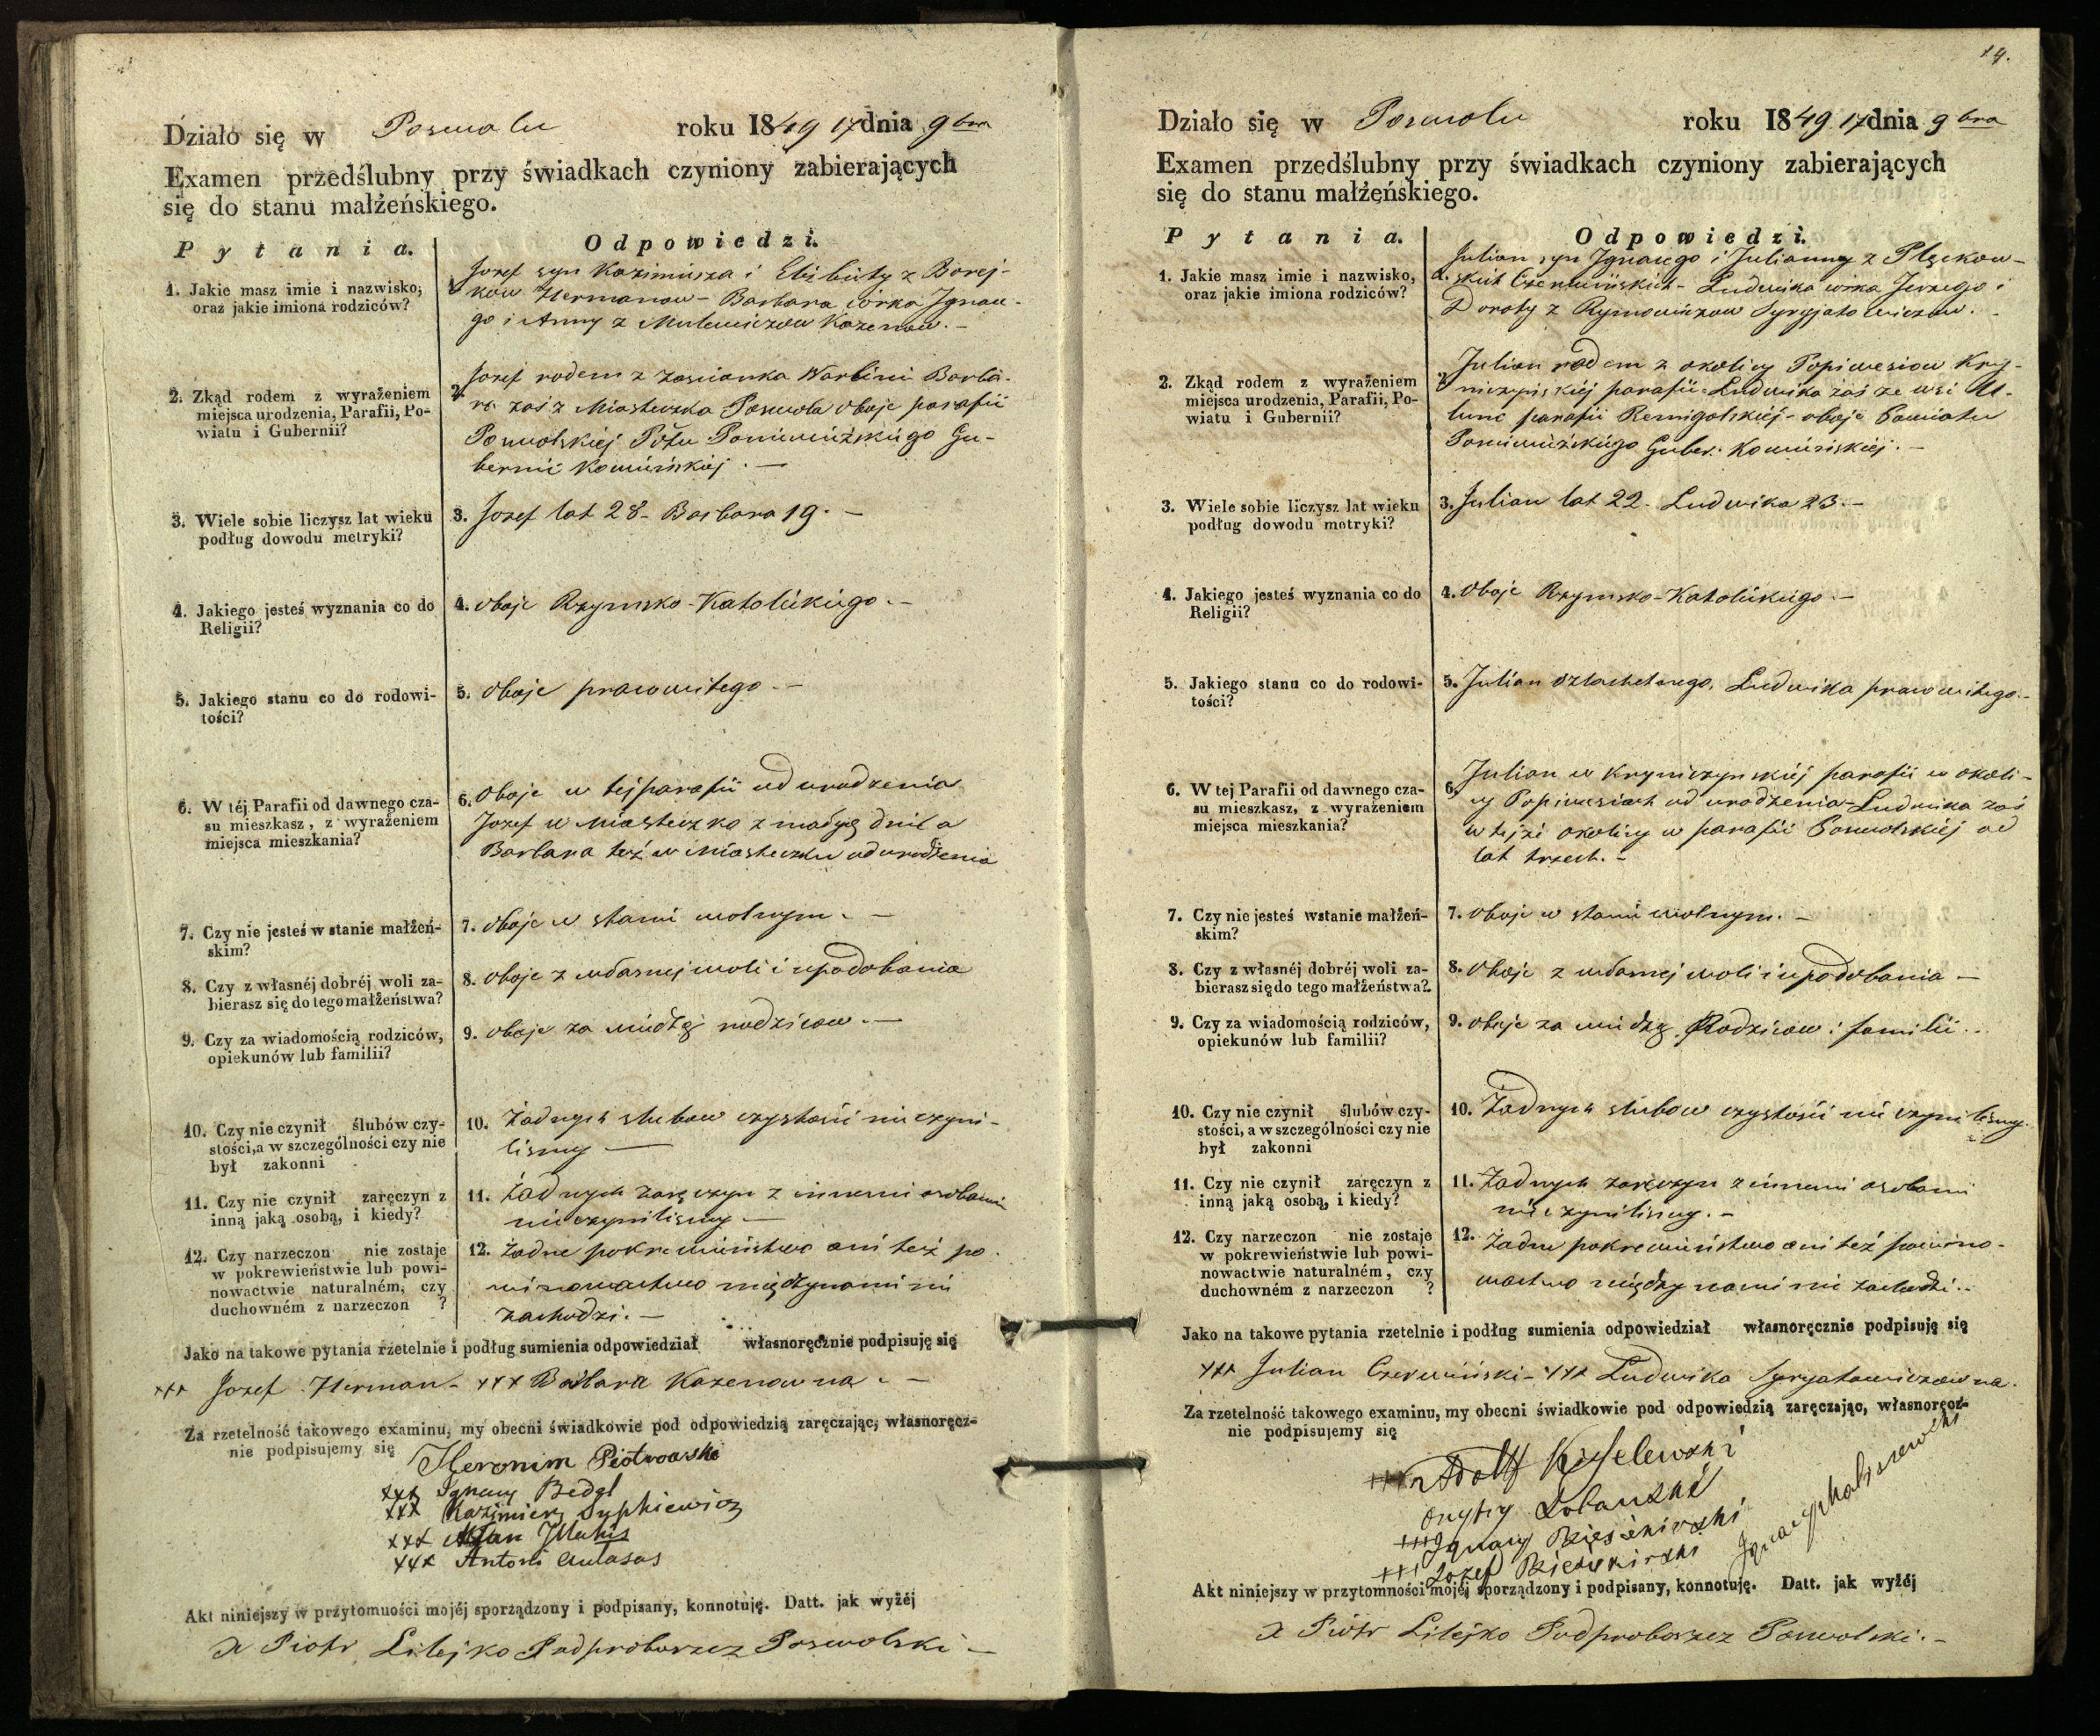 Działo się w Poswolu roku 1849 17 dnia 9bra
Examen przedślubny przy świadkach czyniony zabierających
się do stanu małżeńskiego.
Pytania.
Odpowiedzi.
1. Jakie masz imie i nazwisko,
oraz jakie imiona rodziców?
1. Jozef syn Kazimierza i Elżbiety z Borej-
kow Hermanow - Barbara corka Ignace-
go i Anny z Kozenow. -
2. Zkąd rodem z wyrażeniem
miejsca urodzenia, Parafii, Po-
wiatu i Gubernii?
2. Jozef rodem z zascianka Barba-
ra zaś z Miasteczka Poswola oboje parafii
Poswolskiej Pottu Poniewieżskiego Gu-
bernii Kowieńskiej. -
3. Wiele sobie liczysz lat wieku
podług dowodu metryki?
3. Jozef lat 28 - Barbara 19. -
4. Jakiego jesteś wyznania co do
Religii?
4. Oboje Rzymsko-Katolickiego. -
5. Jakiego stanu co do rodowi-
tości?
5. Oboje prawowitego. -
6. W téj Parafii od dawnego cza-
su mieszkasz, z wyrażeniem
miejsca mieszkania?
6. Oboje w tej parafii od urodzenia
Jozef w Miasteczko z a
Barbara też w Miasteczku od urodzenia
7. Czy nie jesteś w stanie małżeń-
skim?
7. Oboje w stanie wolnym. -
8. Czy z własnéj dobréj woli za-
bierasz się do tego małżeństwa?
8. Oboje z własnej woli i upodobania
9. Czy za wiadomością rodziców,
opiekunów lub familii?
9. Oboje za wiedzą rodzicow. -
10. Czy nie czynił ślubów czy-
stości, a w szczególności czy nie
był zakonni
10. Żadnych slubow czystości nie czyni-
lismy -
11. Czy nie czynił zaręczyn z
inną jaką osobą, i kiedy?
11. Żadnych zaręczyn z innemi osobami
nie czynilismy -
12. Czy narzeczon nie zostaje
w pokrewieństwie lub powi-
nowactwie naturalném, czy
duchowném z narzeczon ?
12. Żadne pokrewieństwo ani też po-
winowactwo między nami nie
zachodzi. -
Jako na takowe pytania rzetelnie i podług sumienia odpowiedział własnoręcznie podpisuję się
xxx Jozef Herman - xxx Barbara Kozenowna. -
Za rzetelność takowego examinu, my obecni świadkowie pod odpowiedzią zaręczając, własnoręcz-
nie podpisujemy się
Heronim Piotrowski
xxx Ignacy Bedgl
xxx Kazimierz Syphiewicz
xxx Jan
xxx Antoni
Akt niniejszy w przytomności mojéj sporządzony i podpisany, konnotuję. Datt. jak wyżéj
X Piotr Litejko Podproboszcz Poswolski -
14.
Działo się w Poswolu roku 1849 17 dnia 9bra
Examen przedślubny przy świadkach czyniony zabierających
się do stanu małżeńskiego.
Pytania.
Odpowiedzi.
1. Jakie masz imie i nazwisko,
oraz jakie imiona rodziców?
1. Julian syn Ignacego i Julianny z Plęckow-
skich Czerwińskich - Ludwika corka Jerzego i
Doroty z Rymowiczow Syrgjatowiczow.
2. Zkąd rodem z wyrażeniem
miejsca urodzenia, Parafii, Po-
wiatu i Gubernii?
2. Julian rodem z okolicy Popiwesiow Kry-
niczyńskiéj parafii - Ludwika zaś ze wsi
parafii Remigolskiéj - oboje Powiatu
Poniewieżskiego Guber. Kowieńskiéj. -
3. Wiele sobie liczysz lat wieku
podług dowodu metryki?
3. Julian lat 22. Ludwika 23. -
4. Jakiego jesteś wyznania co do
Religii?
4. Oboje Rzymsko-Katolickiego -
5. Jakiego stanu co do rodowi-
tości?
5. Julian szlachetnego, Ludwika prawowitego. -
6. W tej Parafii od dawnego cza-
su mieszkasz, z wyrażeniem
miejsca mieszkania?
6. Julian w Kryniczyńskiéj parafii w okoli-
cy Popiwesiach od urodzenia - Ludwika zaś
w tejże okolicy w parafii Poswolskiéj od
lat trzech. -
7. Czy nie jesteś w stanie małżeń-
skim?
7. Oboje w stanie wolnym. -
8. Czy z własnéj dobréj woli za-
bierasz się do tego małżeństwa?
8. Oboje z własnej woli i upodobania -
9. Czy za wiadomością rodziców,
opiekunów lub familii?
9. Oboje za wiedzą Rodzicow i familii. -
10. Czy nie czynił ślubów czy-
stości, a w szczególności czy nie
był zakonni
10. Żadnych slubow czystości nie czynilismy.
11. Czy nie czynił zaręczyn z
inną jaką osobą, i kiedy?
11. Żadnych zaręczyn z innemi osobami
nie czynilismy. -
12. Czy narzeczon nie zostaje
w pokrewieństwie lub powi-
nowactwie naturalném, czy
duchowném z narzeczon ?
12. Żadne pokrewieństwo ani też powino-
wactwo między nami nie zachodzi. -
Jako na takowe pytania rzetelnie i podług sumienia odpowiedział własnoręcznie podpisuję się
xxx Julian Czerwiński - xxx Ludwika Syrgjatowiczowna.
Za rzetelność takowego examinu, my obecni świadkowie pod odpowiedzią zaręczając, własnoręcz-
nie podpisujemy się
xxx Adolf Kisielewski
Onufry Lobanski
xxx Ignacy
xxx Jozef
Ignacy Maliszewski
Akt niniejszy w przytomności mojéj sporządzony i podpisany, konnotuję. Datt. jak wyżéj
X Piotr Litejko Podproboszcz Poswolski. -